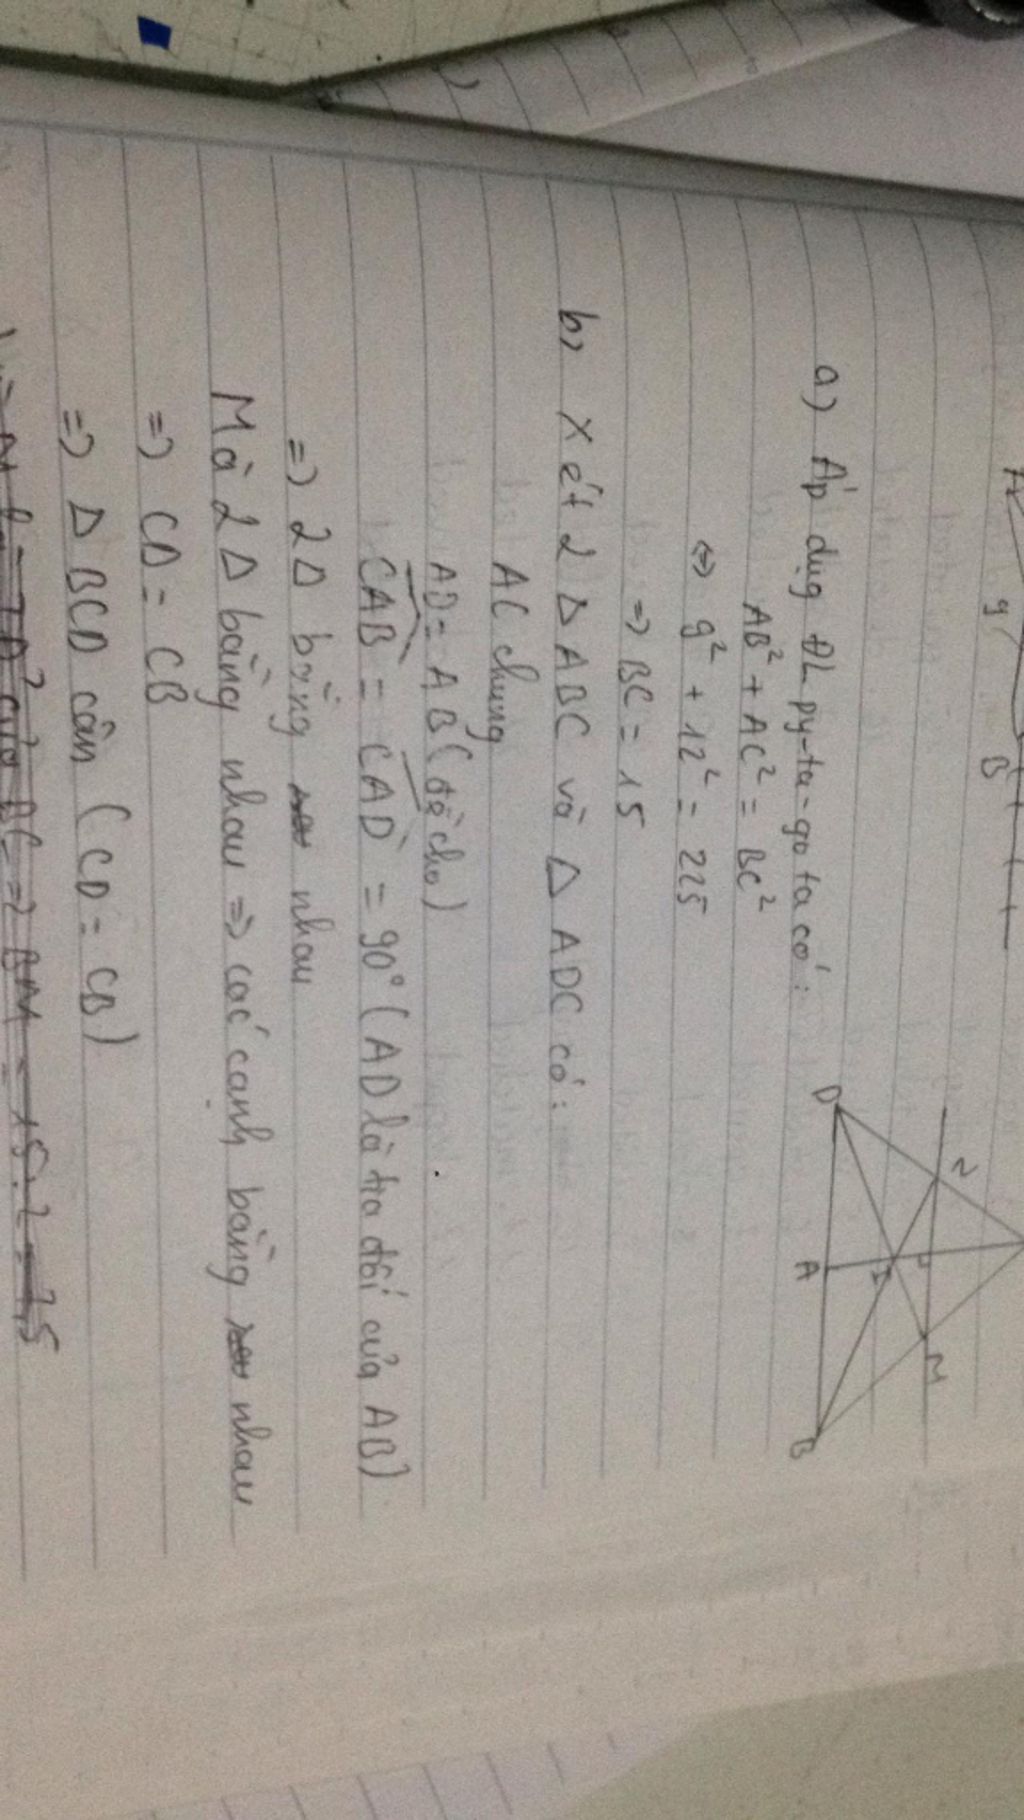 9
B
D
N
A
I
M
B
a) Áp dụg ĐL py-ta-go ta có:
AB² + AC² = BC²
<=> 9² + 12² = 225
=> BC = 15
b, xét 2 Δ ABC và Δ ADC có:
AC chung
AD = AB (đề cho)
CAB = CAD = 90° (AD là tia đối của AB)
=> 2Δ bằng nhau
Mà 2 Δ bằng nhau => các cạnh bằng nhau
=> CD = CB
=> Δ BCD cân (CD = CB)